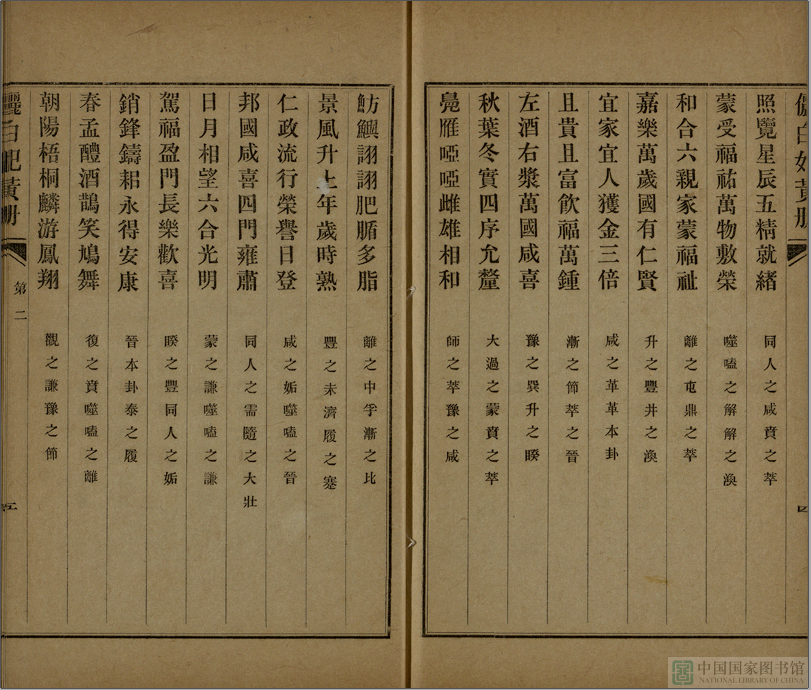 照覽星辰五精就緒 同人之咸賁之萃
蒙受福祐萬物敷榮 噬嗑之解解之渙
和合六親家蒙福祉 離之屯鼎之萃
嘉樂萬歲國有仁賢 升之豐井之渙
宜家宜人獲金三倍 咸之革革本卦
且貴且富飲福萬鍾 漸之節萃之晉
左酒右漿萬國咸喜 豫之巽升之睽
秋葉冬實四序允釐 大過之蒙賁之萃
鳧雁啞啞雌雄相和 師之萃豫之咸
魴鱮詡詡肥腯多脂 離之中孚漸之比
景風升上年歲時熟 豐之未濟履之蹇
仁政流行榮譽日登 咸之姤噬嗑之晉
邦國咸喜四門雍肅 同人之需隨之大壯
日月相望六合光明 蒙之謙噬嗑之謙
駕福盈門長樂歡喜 睽之豐同人之姤
銷鋒鑄耜永得安康 晉本卦泰之履
春孟醴酒鵲笑鳩舞 復之賁噬嗑之離
朝陽梧桐麟游鳳翔 觀之謙豫之節
第二
中国国家图书馆
NATIONAL LIBRARY OF CHINA